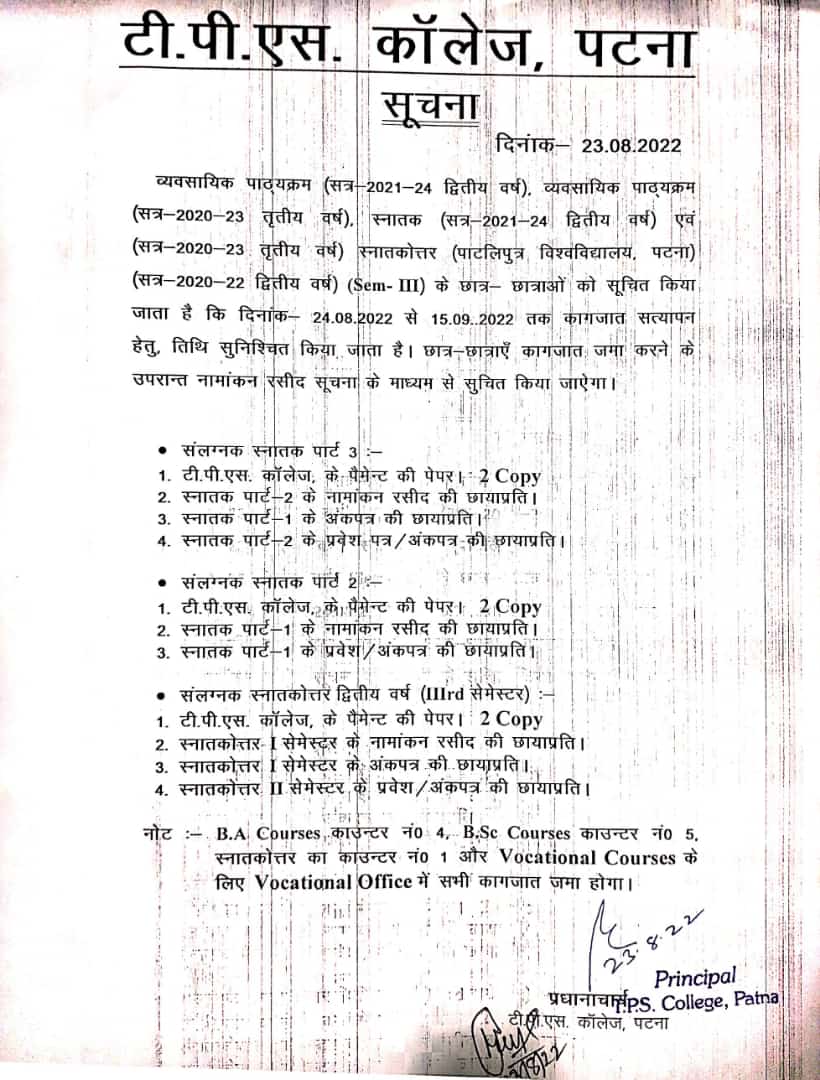 टी.पी.एस. कॉलेज, पटना
सूचना
दिनांक– 23.08.2022
व्यवसायिक पाठ्यक्रम (सत्र–2021–24 द्वितीय वर्ष), व्यवसायिक पाठ्यक्रम
(सत्र–2020–23 तृतीय वर्ष), स्नातक (सत्र–2021–24 द्वितीय वर्ष) एवं
(सत्र–2020–23 तृतीय वर्ष) स्नातकोत्तर (पाटलिपुत्र विश्वविद्यालय, पटना)
(सत्र–2020–22 द्वितीय वर्ष) (Sem- III) के छात्र– छात्राओं को सूचित किया
जाता है कि दिनांक– 24.08.2022 से 15.09..2022 तक कागजात सत्यापन
हेतु, तिथि सुनिश्चित किया जाता है। छात्र–छात्राएँ कागजात जमा करने के
उपरान्त नामांकन रसीद सूचना के माध्यम से सुचित किया जाऐगा।
• संलग्नक स्नातक पार्ट 3 :–
1. टी.पी.एस. कॉलेज, के पैमेन्ट की पेपर। 2 Copy
2. स्नातक पार्ट–2 के नामांकन रसीद की छायाप्रति।
3. स्नातक पार्ट–1 के अंकपत्र की छायाप्रति।
4. स्नातक पार्ट–2 के प्रवेश पत्र/अंकपत्र की छायाप्रति।
• संलग्नक स्नातक पार्ट 2 :–
1. टी.पी.एस. कॉलेज, के पैमेन्ट की पेपर। 2 Copy
2. स्नातक पार्ट–1 के नामांकन रसीद की छायाप्रति।
3. स्नातक पार्ट–1 के प्रवेश/अंकपत्र की छायाप्रति।
• संलग्नक स्नातकोत्तर द्वितीय वर्ष (IIIrd सेमेस्टर) :–
1. टी.पी.एस. कॉलेज, के पैमेन्ट की पेपर। 2 Copy
2. स्नातकोत्तर I सेमेस्टर के नामांकन रसीद की छायाप्रति।
3. स्नातकोत्तर I सेमेस्टर के अंकपत्र की छायाप्रति।
4. स्नातकोत्तर II सेमेस्टर के प्रवेश/अंकपत्र की छायाप्रति।
नोट :– B.A Courses काउन्टर नं0 4, B.Sc Courses काउन्टर नं0 5,
स्नातकोत्तर का काउन्टर नं0 1 और Vocational Courses के
लिए Vocational Office में सभी कागजात जमा होगा।
23.8.22
Principal
प्रधानाचार्य T.P.S. College, Patna
टी.पी.एस. कॉलेज, पटना